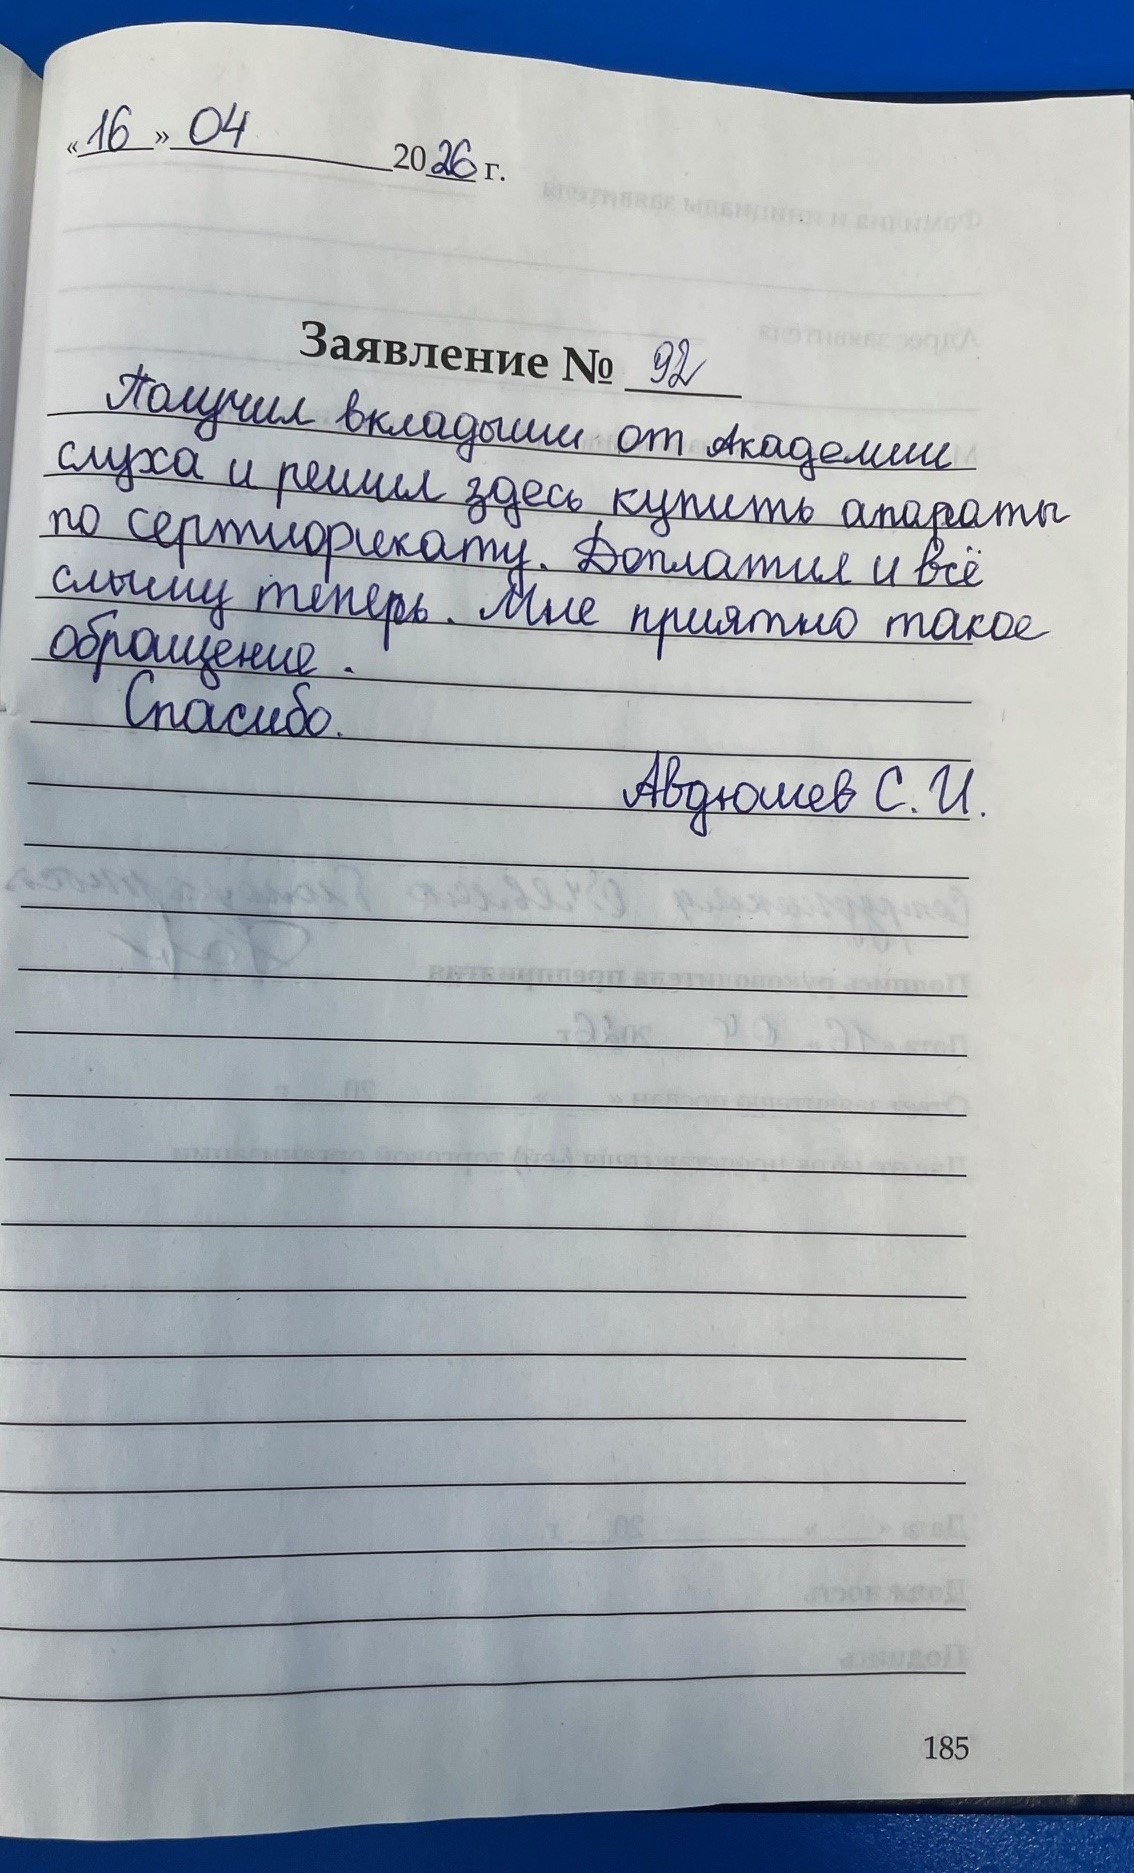 «16» 04 2026 г.
Заявление № 92
Получил вкладыши от Академии
слуха и решил здесь купить апараты
по сертификату. Доплатил и всё
слышу теперь. Мне приятно такое
обращение.
Спасибо.
Авдюшев С. И.
185